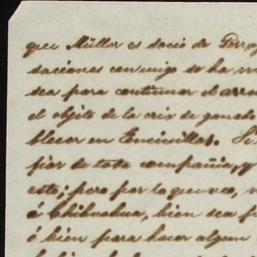 que Müller es socio de Terra
saciones conmigo se ha m
sea para continuar el arren
el objeto de la cria de ganado
blecer en Encinillas. Si
pior de toda compañia, y
este; pero por lo que veo, n
á Chihuahua, bien sea p
ó bien para hacer algun